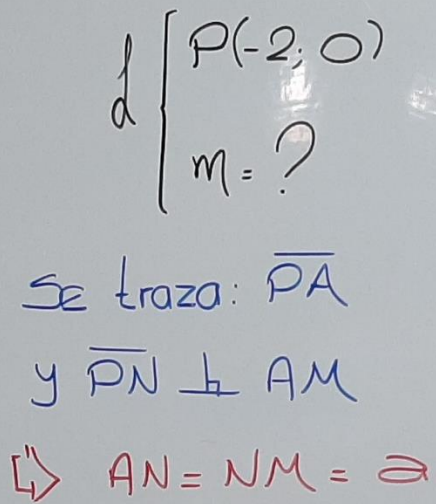 P(-2; 0)
m = ?
Se traza: PA
y PN ⊥ AM
↳ AN = NM = a